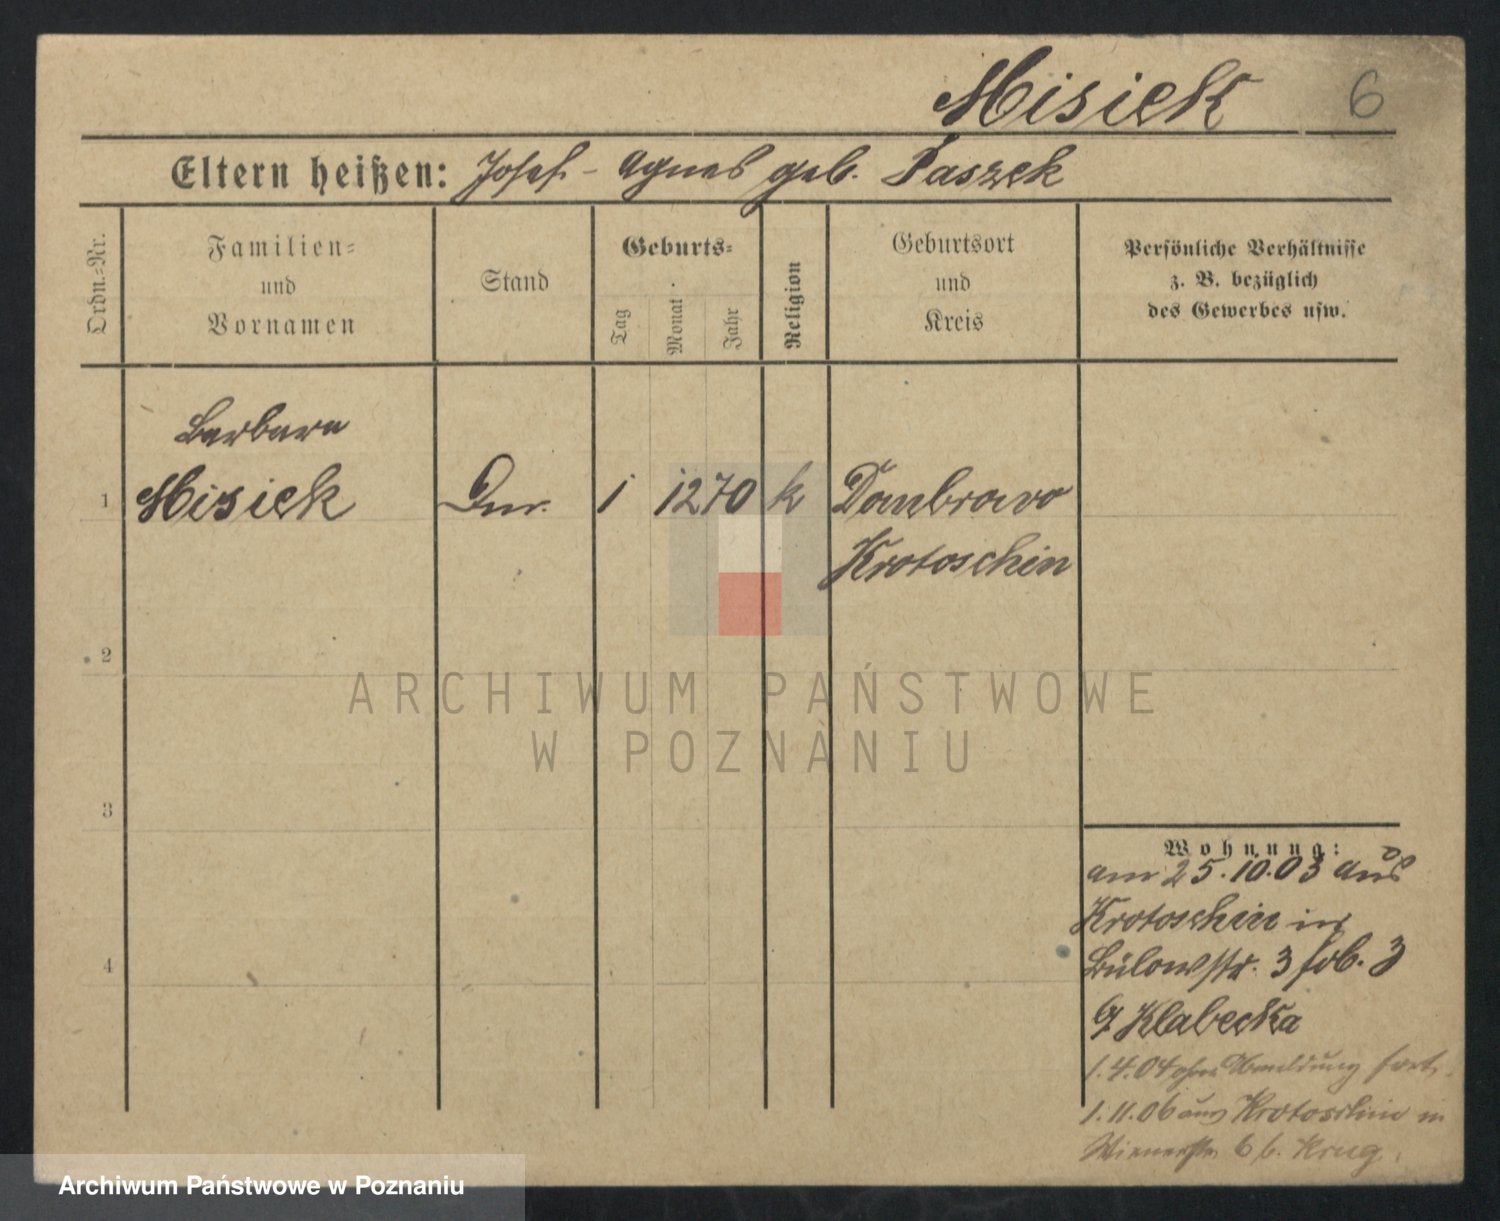 Misiek 6
Eltern heißen: Josef - Agnes geb. Paszek
Ordn.=Nr.
Familien=
und
Vornamen
Stand
Geburts=
Tag
Monat
Jahr
Religion
Geburtsort
und
Kreis
Persönliche Verhältnisse
z. B. bezüglich
des Gewerbes usw.
Barbara
1 Misiek 1 12 70 k Dombrowo
Krotoschin
2
3
4
Wohnung:
am 25.10.03 aus
Krotoschin in
Bülowstr. 3
Klabecka
1.4.04 ohne Abmeldung fort.
1.11.06 aus Krotoschin in
Wienerstr 6 b. Krug.
ARCHIWUM PAŃSTWOWE
W POZNANIU
Archiwum Państwowe w Poznaniu